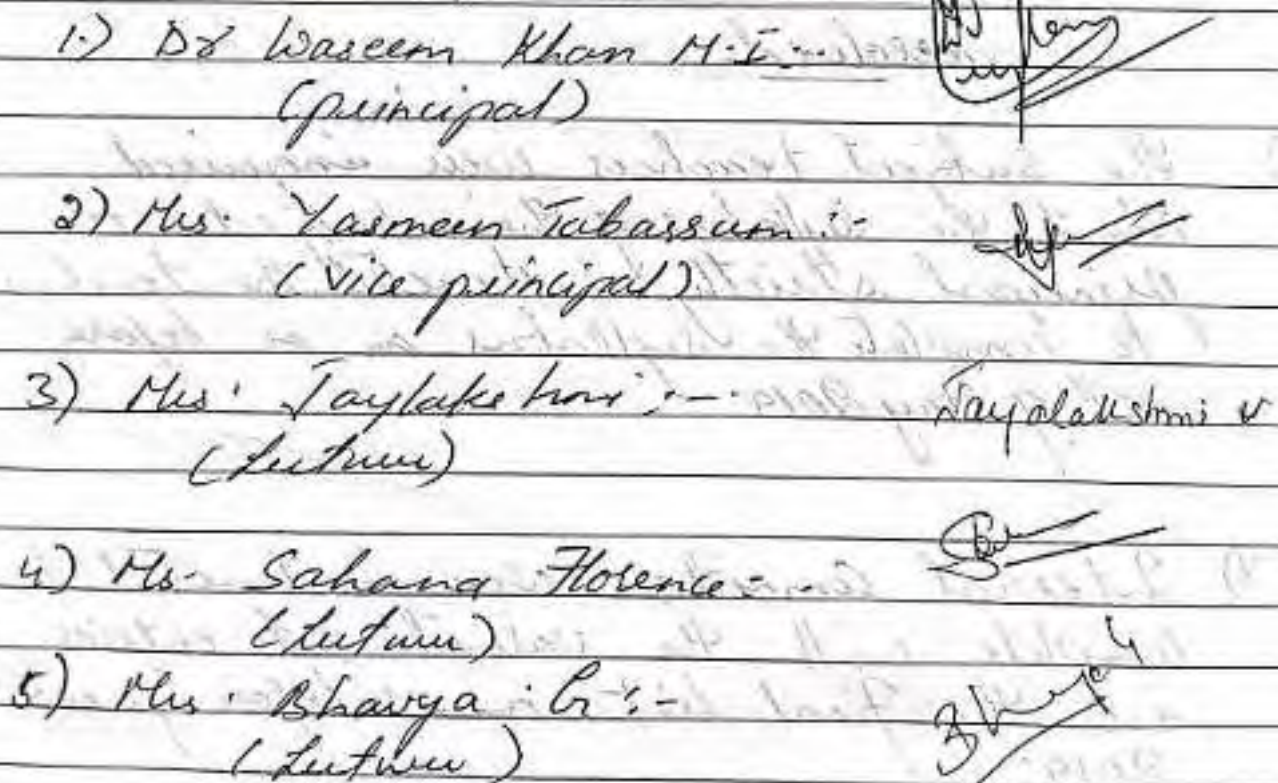 1.) Dr Waseem Khan M.I :-
(principal)
2) Mrs. Yasmeen Tabassum :-
(vice principal)
3) Mrs. Jaylakshmi :- Jayalakshmi V
(Lecturer)
4) Ms. Sahana Florence :-
(Lecturer)
5) Mrs. Bhavya G :- Bhavya G
(Lecturer)